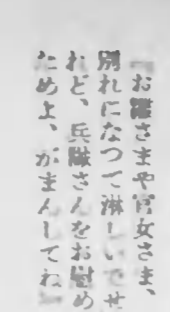 「お雛さまや官女さま、
別れになつて淋しいでせ
れど、兵隊さんをお慰め
ためよ、がまんしてね」